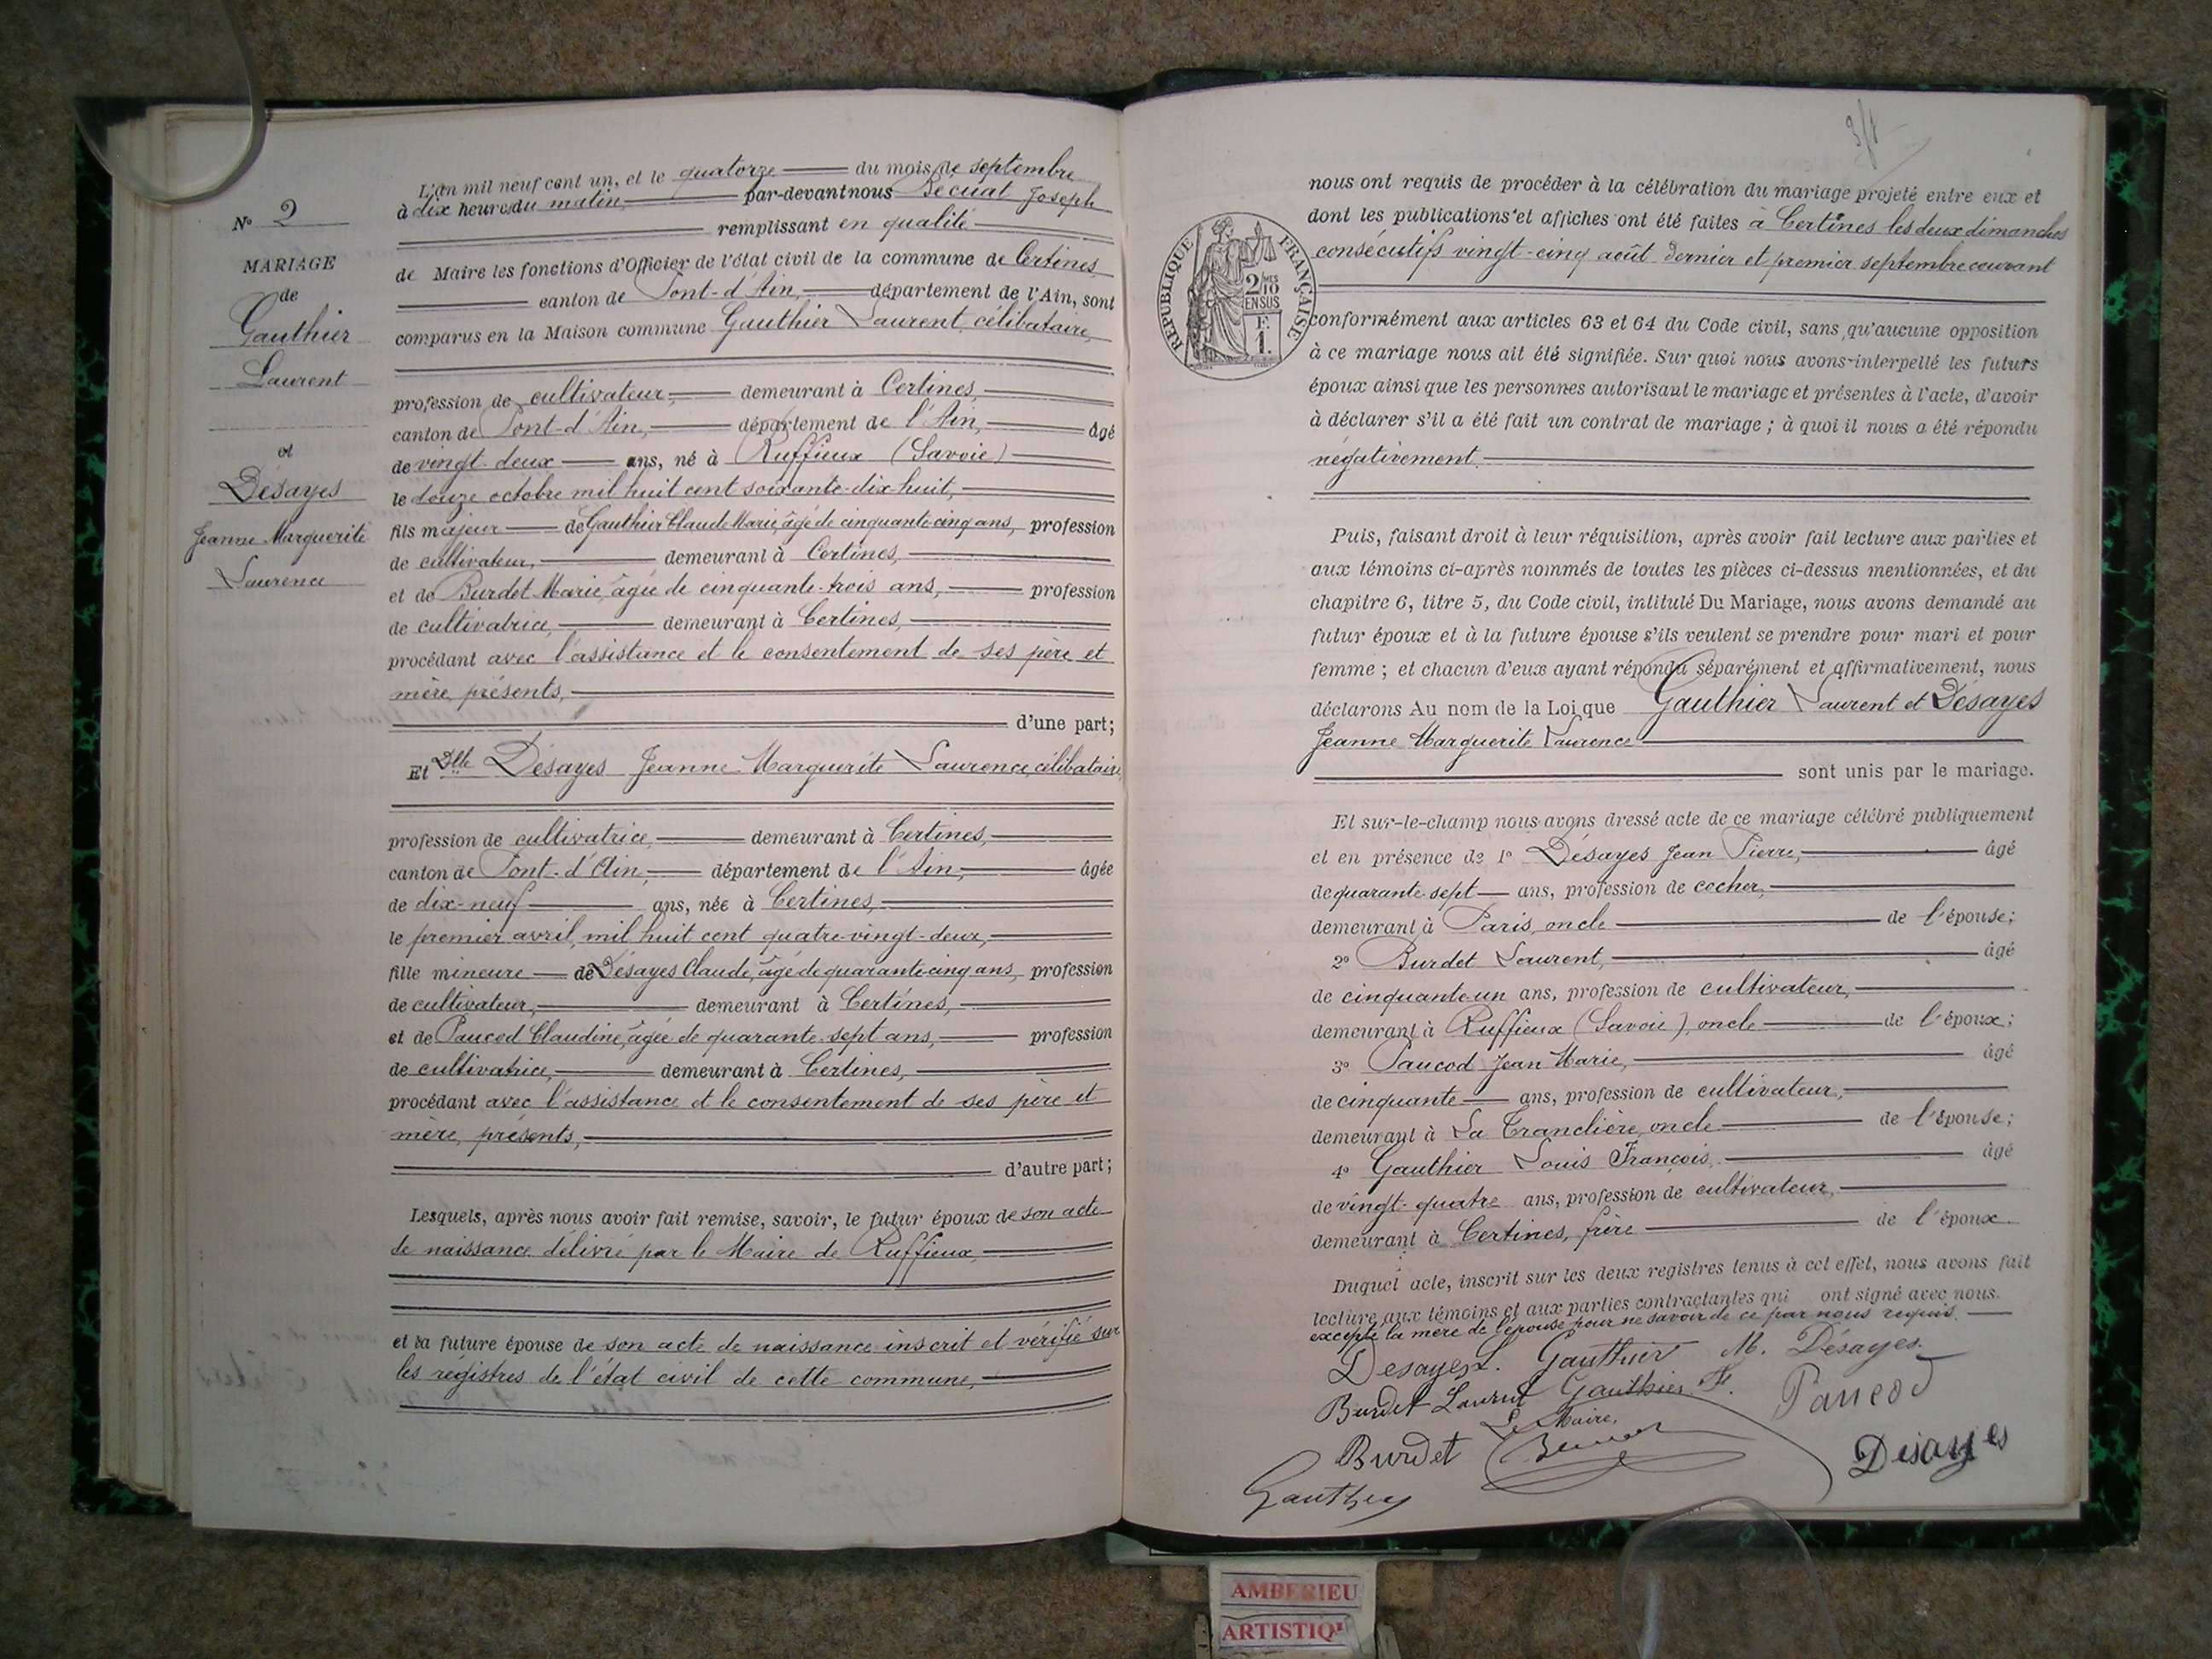 N° 2
MARIAGE
de
Gauthier
Laurent
et
Désayes
Jeanne Marguerite
Laurence
L'an mil neuf cent un, et le quatorze du mois de septembre
à dix heures du matin par-devant nous Joseph
remplissant en qualité
de Maire les fonctions d'Officier de l'état civil de la commune de Certines
canton de Pont-d'Ain, département de l'Ain, sont
comparus en la Maison commune Gauthier Laurent, célibataire,
profession de cultivateur, demeurant à Certines,
canton de Pont-d'Ain, département de l'Ain, âgé
de vingt-deux ans, né à Ruffieux (Savoie)
le douze octobre mil huit cent soixante-dix-huit,
fils majeur de Gauthier Claude Marie, âgé de cinquante-cinq ans, profession
de cultivateur, demeurant à Certines,
et de Burdet Marie, âgée de cinquante-trois ans, profession
de cultivatrice, demeurant à Certines,
procédant avec l'assistance et le consentement de ses père et
mère, présents,
d'une part;
Et Dlle Désayes Jeanne Marguerite Laurence, célibataire
profession de cultivatrice, demeurant à Certines,
canton de Pont-d'Ain, département de l'Ain, âgée
de dix-neuf ans, née à Certines,
le premier avril, mil huit cent quatre-vingt-deux,
fille mineure de Désayes Claude, âgé de quarante-cinq ans, profession
de cultivateur, demeurant à Certines,
et de Paucod Claudine, âgée de quarante-sept ans, profession
de cultivatrice, demeurant à Certines,
procédant avec l'assistance et le consentement de ses père et
mère, présents,
d'autre part;
Lesquels, après nous avoir fait remise, savoir, le futur époux de son acte
de naissance délivré par le Maire de Ruffieux,
et la future épouse de son acte de naissance inscrit et vérifié sur
les régistres de l'état civil de cette commune,
RÉPUBLIQUE FRANÇAISE
2/10 EN SUS
F. 1.
nous ont requis de procéder à la célébration du mariage projeté entre eux et
dont les publications et affiches ont été faites a Certines les deux dimanches
consécutifs vingt-cinq août dernier et premier septembre courant
conformément aux articles 63 et 64 du Code civil, sans qu'aucune opposition
à ce mariage nous ait été signifiée. Sur quoi nous avons interpellé les futurs
époux ainsi que les personnes autorisant le mariage et présentes à l'acte, d'avoir
à déclarer s'il a été fait un contrat de mariage ; à quoi il nous a été répondu
négativement.
Puis, faisant droit à leur réquisition, après avoir fait lecture aux parties et
aux témoins ci-après nommés de toutes les pièces ci-dessus mentionnées, et du
chapitre 6, titre 5, du Code civil, intitulé Du Mariage, nous avons demandé au
futur époux et à la future épouse s'ils veulent se prendre pour mari et pour
femme ; et chacun d'eux ayant répondu séparément et affirmativement, nous
déclarons Au nom de la Loi que Gauthier Laurent et Désayes
Jeanne Marguerite Laurence
sont unis par le mariage.
Et sur-le-champ nous avons dressé acte de ce mariage célébré publiquement
et en présence de 1° Désayes Jean Pierre, âgé
de quarante-sept ans, profession de cocher,
demeurant à Paris, oncle de l'épouse;
2° Burdet Laurent, âgé
de cinquante-un ans, profession de cultivateur,
demeurant à Ruffieux (Savoie), oncle de l'époux;
3° Paucod Jean Marie, âgé
de cinquante ans, profession de cultivateur,
demeurant à La Tranclière, oncle de l'épouse;
4° Gauthier Louis François, âgé
de vingt-quatre ans, profession de cultivateur,
demeurant à Certines, frère de l'époux
Duquel acte, inscrit sur les deux registres tenus à cet effet, nous avons fait
lecture aux témoins et aux parties contractantes qui ont signé avec nous.
excepté la mère de l'épouse pour ne savoir de ce par nous requis.
Desayes L. Gauthier M. Désayes.
Burdet Laurent Gauthier F. Paucod
Le Maire,
Burdet Désayes
AMBERIEU
ARTISTIQ